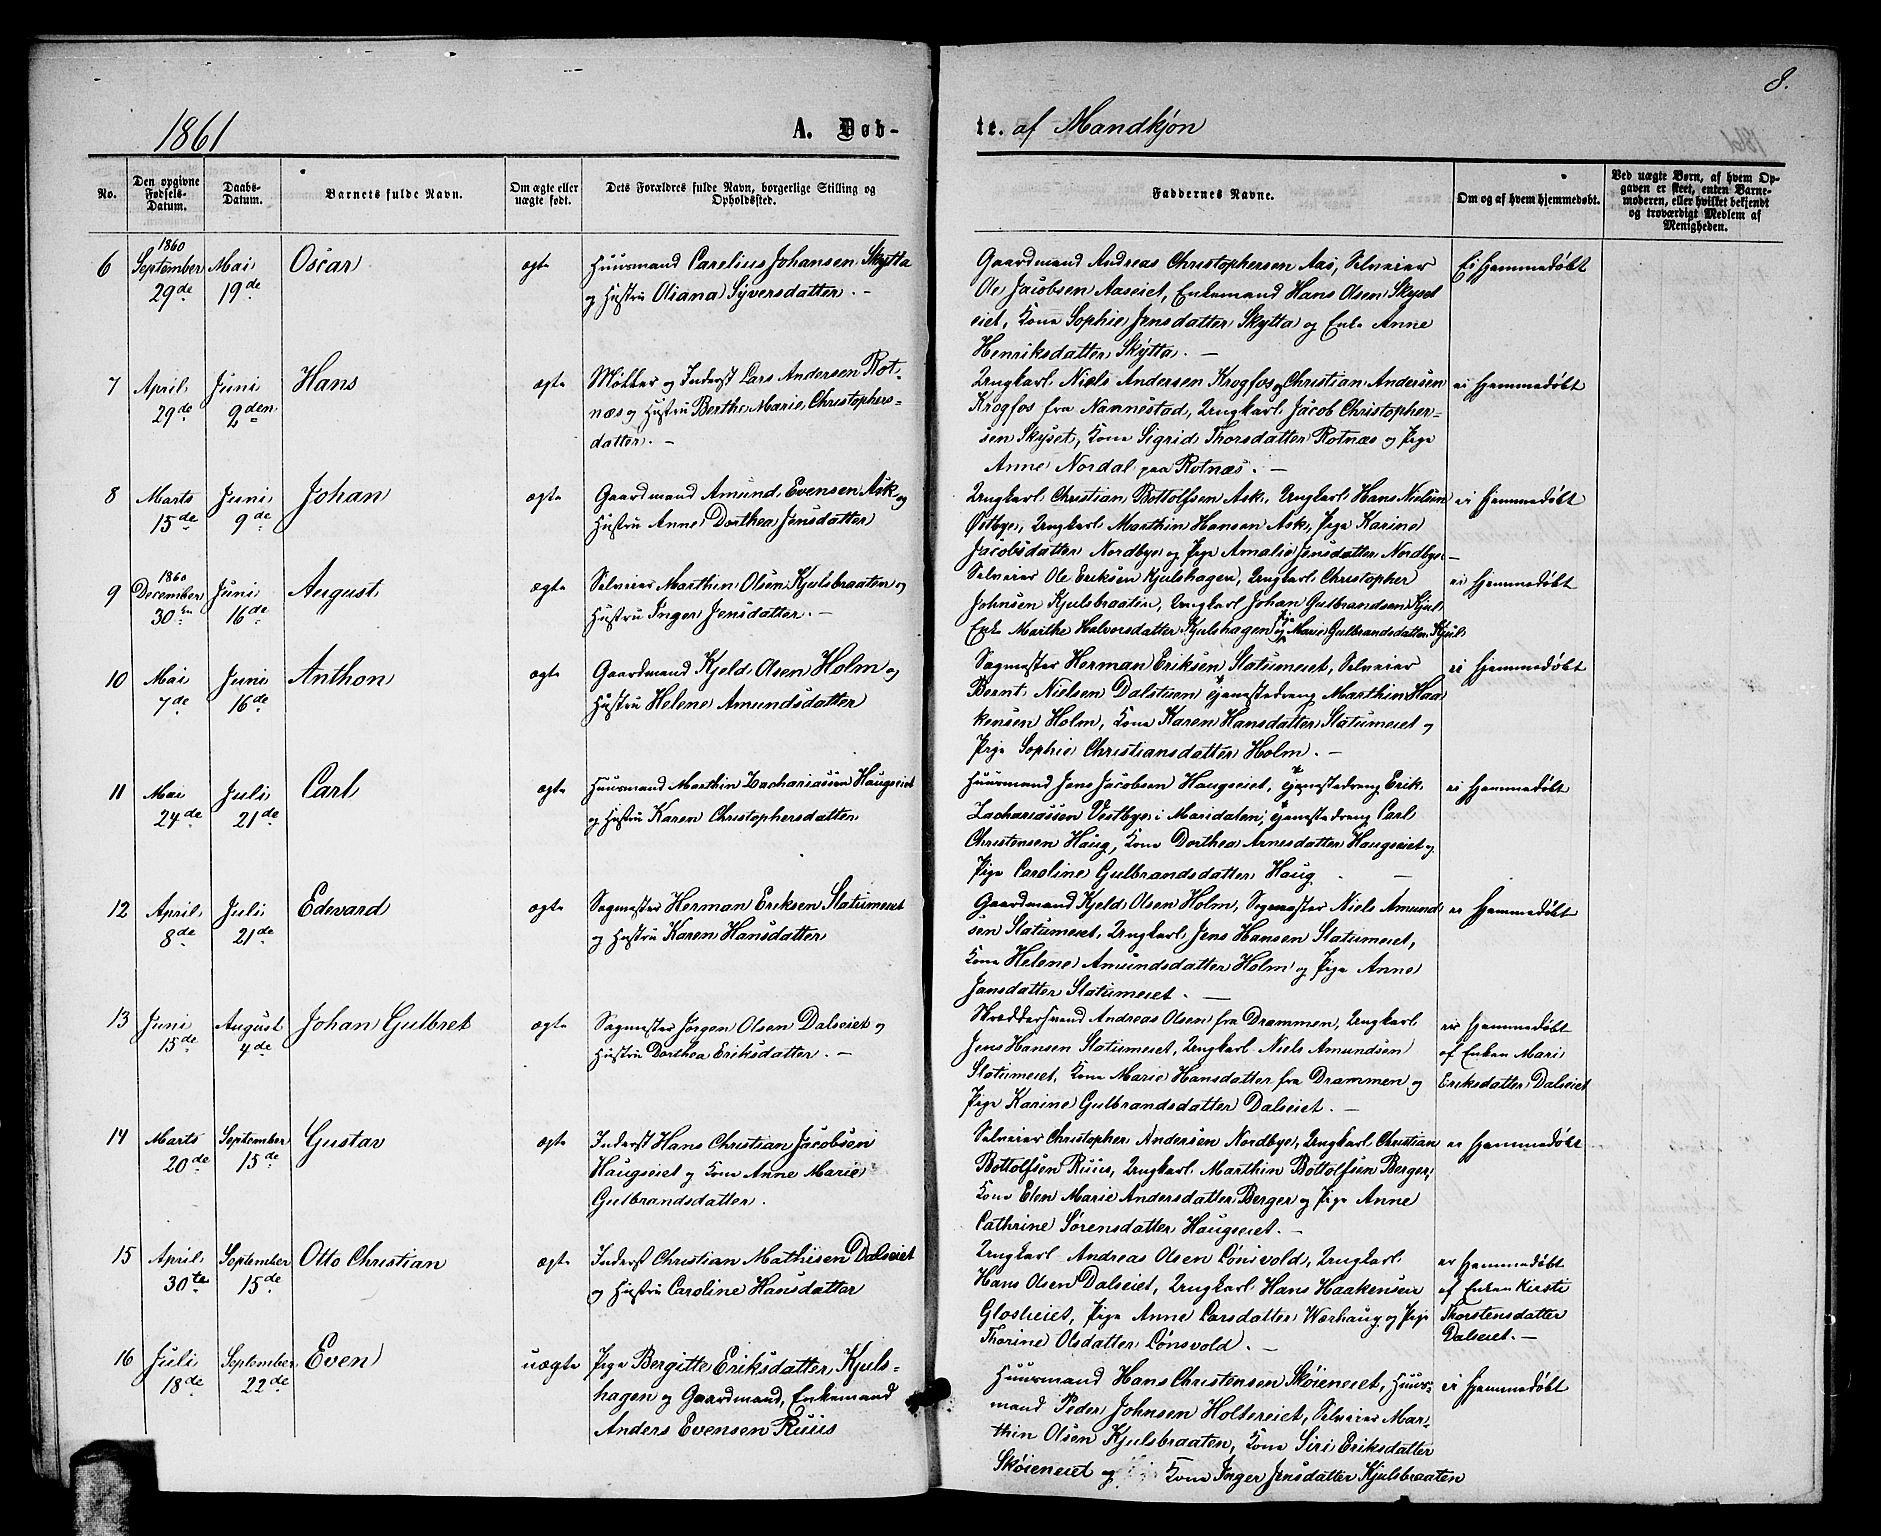 8.
1861 A. Døb- te. af Mandkjøn
No.
Den opgivne Fødsels-Datum.
Daabs-Datum.
Barnets fulde Navn.
Om ægte eller uægte født.
Dets Forældres fulde Navn, borgerlige Stilling og Opholdssted.
Faddernes Navne.
Om og af hvem hjemmedøbt.
Ved uægte Børn, af hvem Opgaven er skeet, enten Barnemoderen, eller hvilket bekjendt og troværdigt Medlem af Menigheden.
6
1860
September
29de
Mai
19de
Oscar
ægte
Huusmand Carelius Johansen Skytta
og Hustru Oliana Syversdatter. —
Gaardmand Andreas Christophersen Aas, Selveier
Ole Jacobsen Aaseiet, Enkemand Hans Olsen Skyset
eiet, Kone Sophie Jensdatter Skytta og Enke Anne
Henriksdatter Skytta. —
Ei hjemmedøbt
7
April
29de
Juni
9den
Hans
ægte
Møller og Inderst Lars Andersen Rot-
næs og Hustru Berthe Marie Christophers-
datter. —
Ungkarl Niels Andersen Krogfos og Christian Andersen
Krogfos fra Nannestad, Ungkarl Jacob Christopher-
sen Skyset, Kone Sigrid Thorsdatter Rotnæs og Pige
Anne Nordal paa Rotnæs. —
ei hjemmedøbt
8
Marts
15de
Juni
9de
Johan
ægte
Gaardmand Amund Evensen Ask og
Hustru Anne Dorthea Jensdatter
Ungkarl Christian Bottolfsen Ask, Ungkarl Hans Nielsen
Østbye, Ungkarl Marthin Hansen Ask, Pige Karine
Jacobsdatter Nordbye og Pige Amalie Jensdatter Nordbye —
ei hjemmedøbt
9
1860
December
30te
Juni
16de
August
ægte
Selveier Marthin Olsen Kjulsbraaten og
Hustru Inger Jensdatter. —
Selveier Ole Eriksen Kjulshagen, Ungkarl Christopher
Johnsen Kjulsbraaten, Ungkarl Johan Gulbrandsen Kjul
Enke Marthe Halvorsdatter Kjulshagen og Pige Marie Gulbrandsdatter Kjul
ei hjemmedøbt
10
Mai
7de
Juni
16de
Anthon
ægte
Gaardmand Kjeld Olsen Holm og
Hustru Helene Amundsdatter
Sagmester Herman Eriksen Slatumeiet, Selveier
Bernt Nielsen Dalstuen Tjenestedreng Marthin Haa-
kensen Holm, Kone Karen Hansdatter Slatumeiet og
Pige Sophie Christiansdatter Holm. —
ei hjemmedøbt
11
Mai
24de
Juli
21de
Carl
ægte
Huusmand Marthin Zachariassen Haugseiet
og Hustru Karen Christophersdatter
Huusmand Jens Jacobsen Haugseiet, Tjenestedreng Erik
Zachariassen Vestbye i Maridalen, Tjenestedreng Carl
Christensen Haug, Kone Dorthea Arnesdatter Haugseiet og
Pige Caroline Gulbrandsdatter Haug —
ei hjemmedøbt
12
April
8de
Juli
21de
Edevard
ægte
Sagmester Herman Eriksen Slatumeiet
og Hustru Karen Hansdatter
Gaardmand Kjeld Olsen Holm, Sagmester Niels Amund
sen Slatumeiet, Ungkarl Jens Hansen Slatumeiet,
Kone Helene Amundsdatter Holm og Pige Anne
Jansdatter Slatumeiet. —
er hjemmedøbt
13
Juni
15de
August
4de
Johan Gulbret
ægte
Sagmester Jørgen Olsen Dalseiet og
Hustru Dorthea Eriksdatter. —
Skrædersvend Andreas Olsen fra Drammen, Ungkarl
Jens Hansen Slatumeiet, Ungkarl Niels Amundsen
Slatumeiet, Kone Marie Hansdatter fra Drammen og
Pige Karine Gulbrandsdatter Dalseiet. —
er hjemmedøbt
af Enken Mari
Eriksdatter Dalseiet
14
Marts
20de
September
15de
Gustav
ægte
Inderst Hans Christian Jacobsen
Haugseiet og Kone Anne Marie
Gulbrandsdatter.
Selveier Christopher Andersen Nordbye, Ungkarl Christian
Bottolfsen Ruus, Ungkarl Marthin Bottolfsen Berger,
Kone Elen Marie Andersdatter Berger og Pige Anne
Cathrine Sørensdatter Haugseiet. —
er hjemmedøbt
15
April
30te
September
15de
Otto Christian
ægte
Inderst Christian Mathisen Dalseiet
og Hustru Caroline Hansdatter
Ungkarl Andreas Olsen Lønsvold, Ungkarl
Hans Olsen Dalseiet, Ungkarl Hans Haakensen
Glosleiet, Pige Anne Larsdatter Wærhaug og Pige
Thorine Olsdatter Lønsvold. —
er hjemmedøbt
af Enken Kirsti
Thorstensdatter
Dalseiet. —
16
Juli
18de
September
22de
Even
uægte
Pige Bergitte Eriksdatter Kjuls-
hagen og Gaardmand, Enkemand
Anders Evensen Ruus
Huusmand Hans Christensen Skøieneiet, Huus-
mand Peder Johnsen Holtereiet, Selveier Mar-
thin Olsen Kjulsbraaten, Kone Siri Eriksdatter
Skøieneiet og Kone Inger Jensdatter Kjulsbraaten
ei hjemmedøbt